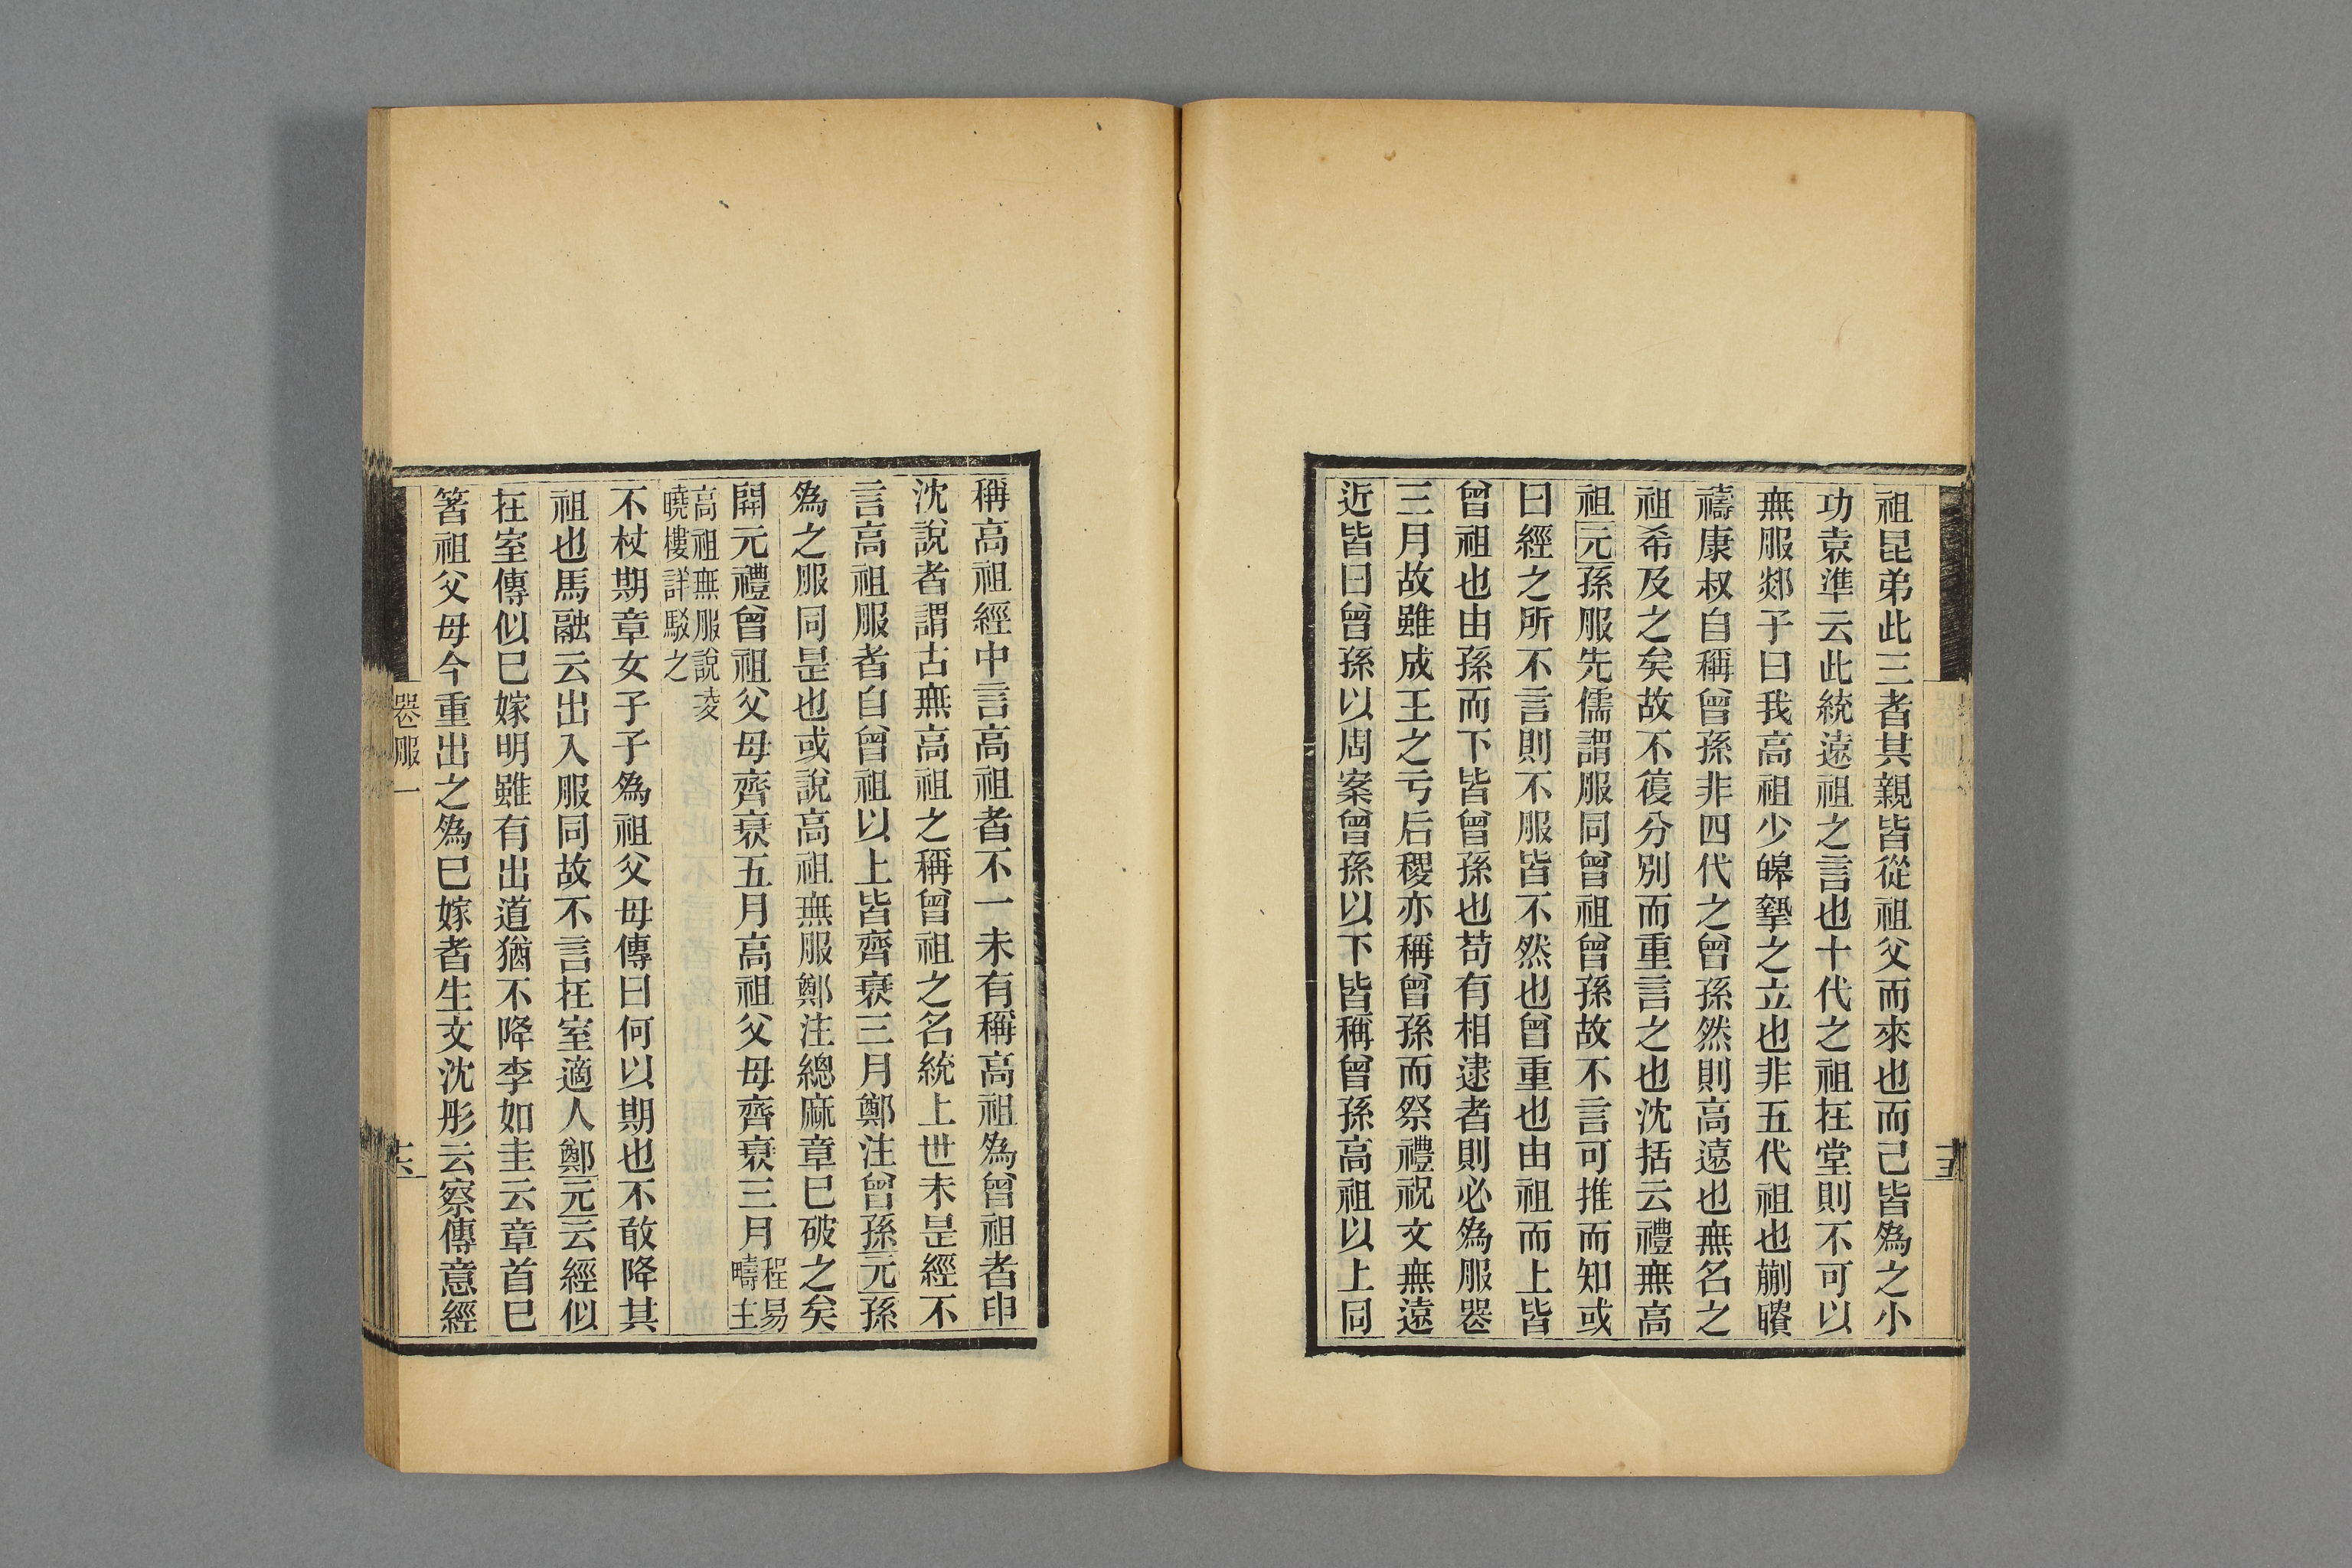 祖昆弟此三者其親皆從祖父而來也而己皆爲之小
功袁準云此統遠祖之言也十代之祖在堂則不可以
無服郯子曰我高祖少皞摯之立也非五代祖也蒯聵
禱康叔自稱曾孫非四代之曾孫然則高遠也無名之
祖希及之矣故不復分別而重言之也沈括云禮無高
祖元孫服先儒謂服同曾祖曾孫故不言可推而知或
曰經之所不言則不服皆不然也曾重也由祖而上皆
曾祖也由孫而下皆曾孫也苟有相逮者則必爲服器
三月故雖成王之亏后稷亦稱曾孫而祭禮祝文無遠
近皆曰曾孫以周案曾孫以下皆稱曾孫高祖以上同
稱高祖經中言高祖者不一未有稱高祖爲曾祖者申
沈說者謂古無高祖之稱曾祖之名統上世未是經不
言高祖服者自曾祖以上皆齊衰三月鄭注曾孫元孫
爲之服同是也或說高祖無服鄭注緦麻章已破之矣
開元禮曾祖父母齊衰五月高祖父母齊衰三月程易
疇主
高祖無服說凌
曉樓詳駁之
不杖期章女子子爲祖父母傳曰何以期也不敢降其
祖也馬融云出入服同故不言在室適人鄭元云經似
在室傳似已嫁明雖有出道猶不降李如圭云章首已
箸祖父母今重出之爲已嫁者生文沈彤云察傳意經
器服一
十六